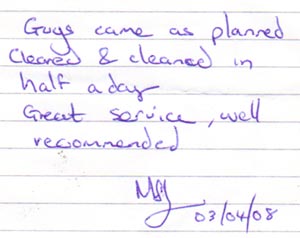 Guys came as planned
Cleared & cleaned in
half a day
Great service, well
recommended
03/04/08